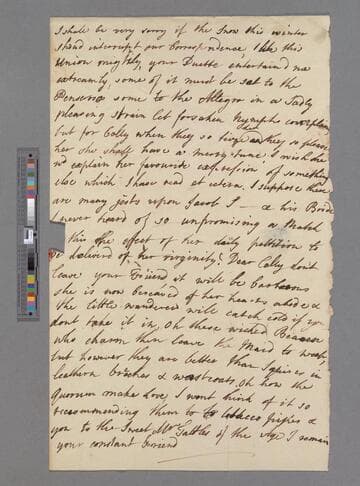 I shall be very sorry if the Snow this winter
should interrupt our Correspondence, I like this
Union mightily, your Duette entertain'd me
extreamly, some of it must be sat to the
Penseroso some to the Allegro in a Sadly
pleasing strain let forsaken Nymphs complain
but for Colly when they so they so please
her she shall have a merry tune. I wish she
wd explain her favourite expression of something
else which I have read et cetera. I suppose there
are many jests upon Jacob J— & his Bride
never heard of so unpromising a Match
this the effect of her daily petition to
be deliver'd of her virginity? Dear Colly don't
leave your Friend it will be barbarous
she is now bereaved of her hearts abode &
the little wanderer will catch cold if you
dont take it in, oh these wicked Beaux
who charm then leave the Maid to weep,
but however they are better than Squires in
leathern breeches & wastcoats, oh how the
Quorum make love, I wont think of it so
recommending them to tobacco pipes &
you to the Sweet Mr of the Age I remain
your constant Friend